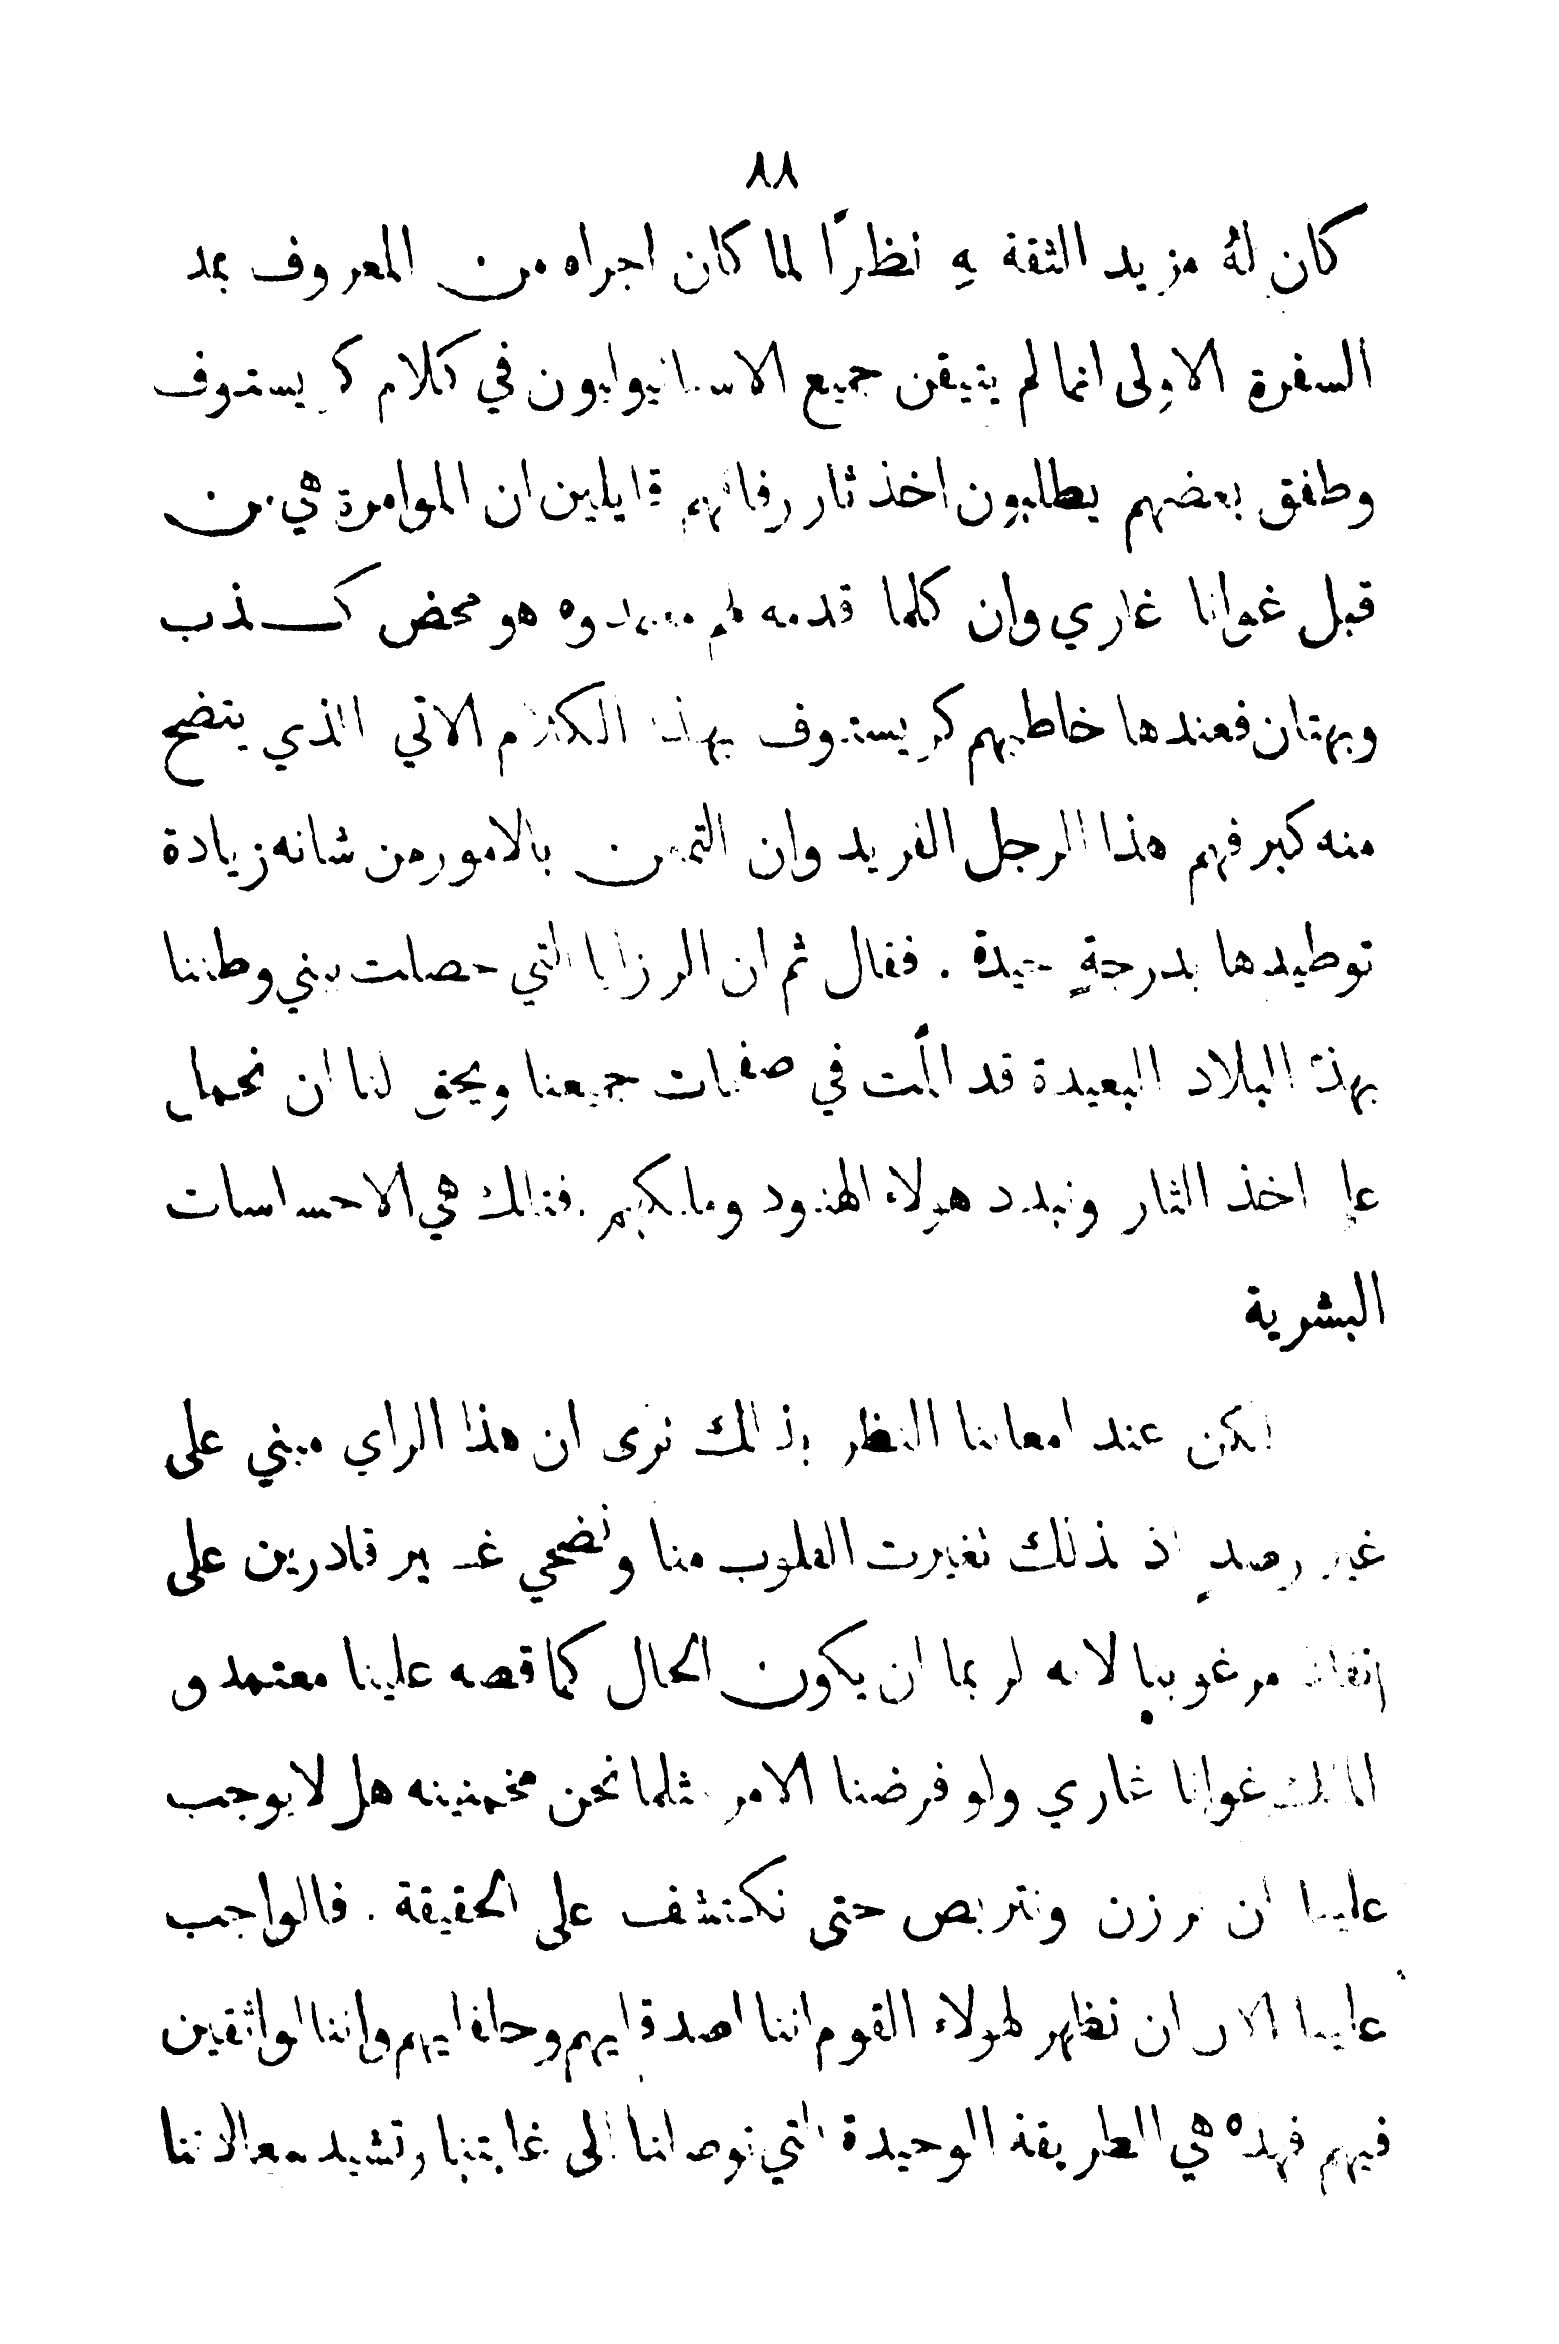 ٨٨
كان لهُ مزيد الثقة بهِ نظرًا لما كان اجراه من المعروف بعد
السفرة الاولى انما لم يتيقن جميع الاسبانيوليون في كلام كريستوف
وطفق بعضهم يطلبون اخذ ثار رفاقهم قايلين ان الموامرة هي من
قبل غوانا غاري وان كلما قدمه لهم معتمدوه هو محض كذب
وبهتان فعندها خاطبهم كريستوف بهذا الكلام الاتي الذي يتضح
منه كبر فهم هذا الرجل الفريد وان التمعن بالامور من شانه زيادة
توطيدها بدرجةٍ جيدة . فقال ثم ان الرزايا التي حصلت ببني وطننا
بهذه البلاد البعيدة قد المَّت في صفات جميعنا ويحق لنا ان نحمل
على اخذ الثار ونبدد هولاء الهنود وملكهم . فتلك هي الاحساسات
البشرية
لكن عند امعاننا النظر بذلك نرى ان هذا الراي مبني على
غير رصدٍ اذ بذلك تغيرت القلوب منا ونضحي غير قادرين على
انفاذ مرغوبنا لانه لربما ان يكون الحال كما قصه علينا معتمدو
الملك غوانا غاري ولو فرضنا الامر مثلما نحن مخمنينه هل لا يوجب
علينا ان نرزن ونتربص حتى نكتشف على الحقيقة . فالواجب
علينا الان ان نظهر لهولاء القوم اننا اصدقايهم وحلفايهم واننا لواثقين
فيهم فهذه هي الطريقة الوحيدة التي توصلنا الى غايتنا وتشيد معالاتنا